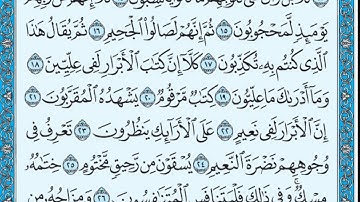 يَوْمَئِذٍ لَّمَحْجُوبُونَ ١٥ ثُمَّ إِنَّهُمْ لَصَالُوا۟ الْجَحِيمِ ١٦ ثُمَّ يُقَالُ هَٰذَا
الَّذِي كُنتُم بِهِ تُكَذِّبُونَ ١٧ كَلَّا إِنَّ كِتَابَ الْأَبْرَارِ لَفِي عِلِّيِّينَ ١٨
وَمَا أَدْرَاكَ مَا عِلِّيُّونَ ١٩ كِتَابٌ مَّرْقُومٌ ٢٠ يَشْهَدُهُ الْمُقَرَّبُونَ ٢١
إِنَّ الْأَبْرَارَ لَفِي نَعِيمٍ ٢٢ عَلَى الْأَرَائِكِ يَنظُرُونَ ٢٣ تَعْرِفُ فِي
وُجُوهِهِمْ نَضْرَةَ النَّعِيمِ ٢٤ يُسْقَوْنَ مِن رَّحِيقٍ مَّخْتُومٍ ٢٥ خِتَامُهُ
مِسْكٌ وَفِي ذَٰلِكَ فَلْيَتَنَافَسِ الْمُتَنَافِسُونَ ٢٦ وَمِزَاجُهُ مِن